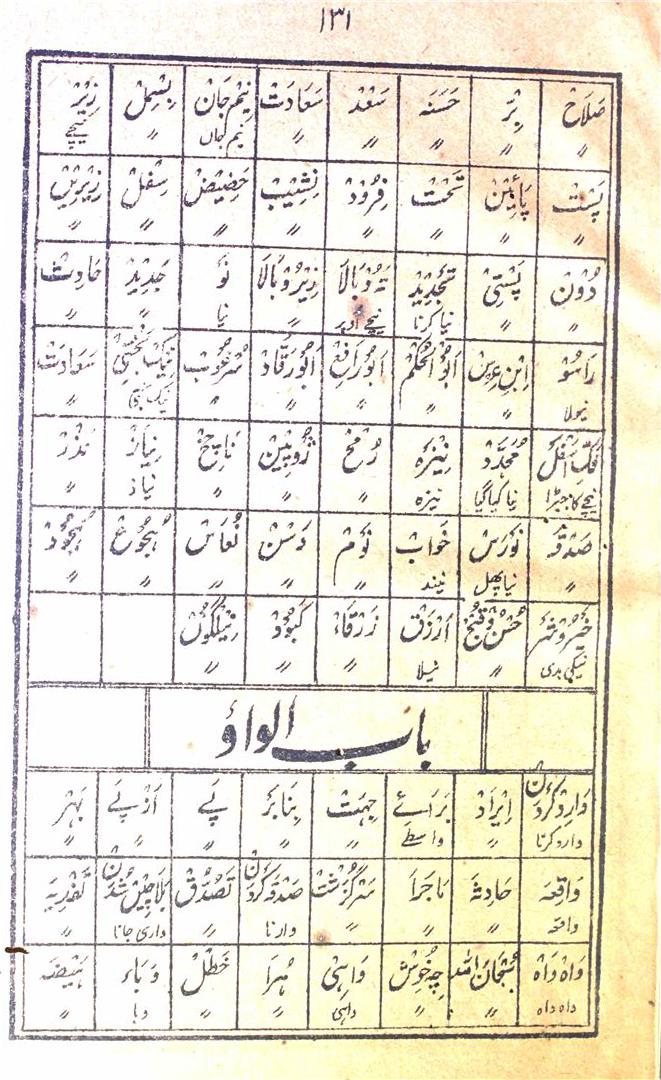 ۱۳۱
صَلَاح بِرّ حَسَنَہ سَعْد سَعَادَتْ نِیْم جَان بِسْمِلْ زِیْر
〃 〃 〃 〃 〃 نیم جاں 〃 نیچے
پَسْت پَائِیْن تَحْت فِرُوْد نِشِیْب حَضِیْض سِفْل زِیْرِیْں
〃 〃 〃 〃 〃 〃 〃 〃
دُوْن پَسْتِیْ تَجْدِیْد تَہ وبَالَا زِیْر وبَالَا نَوْ جَدِیْد حَادِثْ
〃 〃 نیا کرنا نیچے اوپر 〃 نیا 〃 〃
رَاسُوْ اِبْنِ عِرس اَبُوالْحَکَمْ اَبُوْرَافِعْ اَبُوْرَقَّادْ سُرْعُوْب نیک بختی سَعَادَتْ
نیولا 〃 〃 〃 〃 〃 نیک بختی 〃
فَکِّ اَسْفَلْ مُجَدَّدْ نِیْزَہ رُمْح ژُوْبِیْن نَاچَخْ نِیَازْ نَذْرْ
نیچے کا جبڑا نیا کیا گیا نیزہ 〃 〃 〃 نیاز 〃
صَدْقَہ نَوْرَسْ خَوَابْ نَوْمْ وَسَنْ نُعَاسْ ہُجُوْعْ ہُجُوْدْ
〃 نیا پھل نیند 〃 〃 〃 〃 〃
خَیْر وشَرْ حُسْن وقُبْح اَزْرَقْ زَرْقَاءْ کَبُوْدْ نِیْلگُوْں
نیکی بدی 〃 نیلا 〃 〃 〃
باب الواؤ
وَارِدْ کَرْدَنْ اِیْرَادْ بَرَائے جِہَتْ بَنَابَرْ پَے اَزْپَے بَہْرْ
وارد کرنا 〃 واسطے 〃 〃 〃 〃 〃
وَاقِعَہ حَادِثَہ مَاجَرَا سَرْگُزَشْت صَدْقَہ کَرْدَنْ تَصَدُّقْ بَلَا چِیْں شُدَنْ تَفْدِیَہ
واقعہ 〃 〃 〃 وارنا 〃 واری جانا 〃
وَاہ وَاہ سُبْحَانَ اللہ چِہ خُوْش وَاہِیْ ہُرَا خَطَلْ وَبَاء ہَیْضَہ
واہ واہ 〃 〃 واہی 〃 〃 وبا 〃